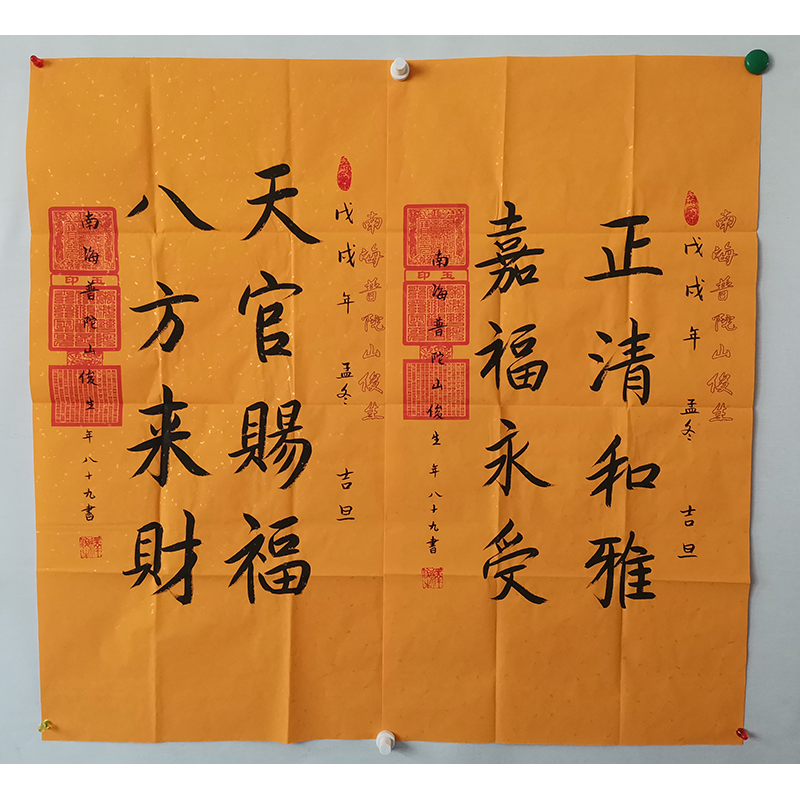 南海普陀山俊生
戊戌年 孟冬 吉旦
正清和雅
嘉福永受
南海普陀山俊生年八十九書
玉印
戊戌年 孟冬 吉旦
南海普陀山俊生
天官賜福
八方来財
南海普陀山俊生年八十九書
玉印